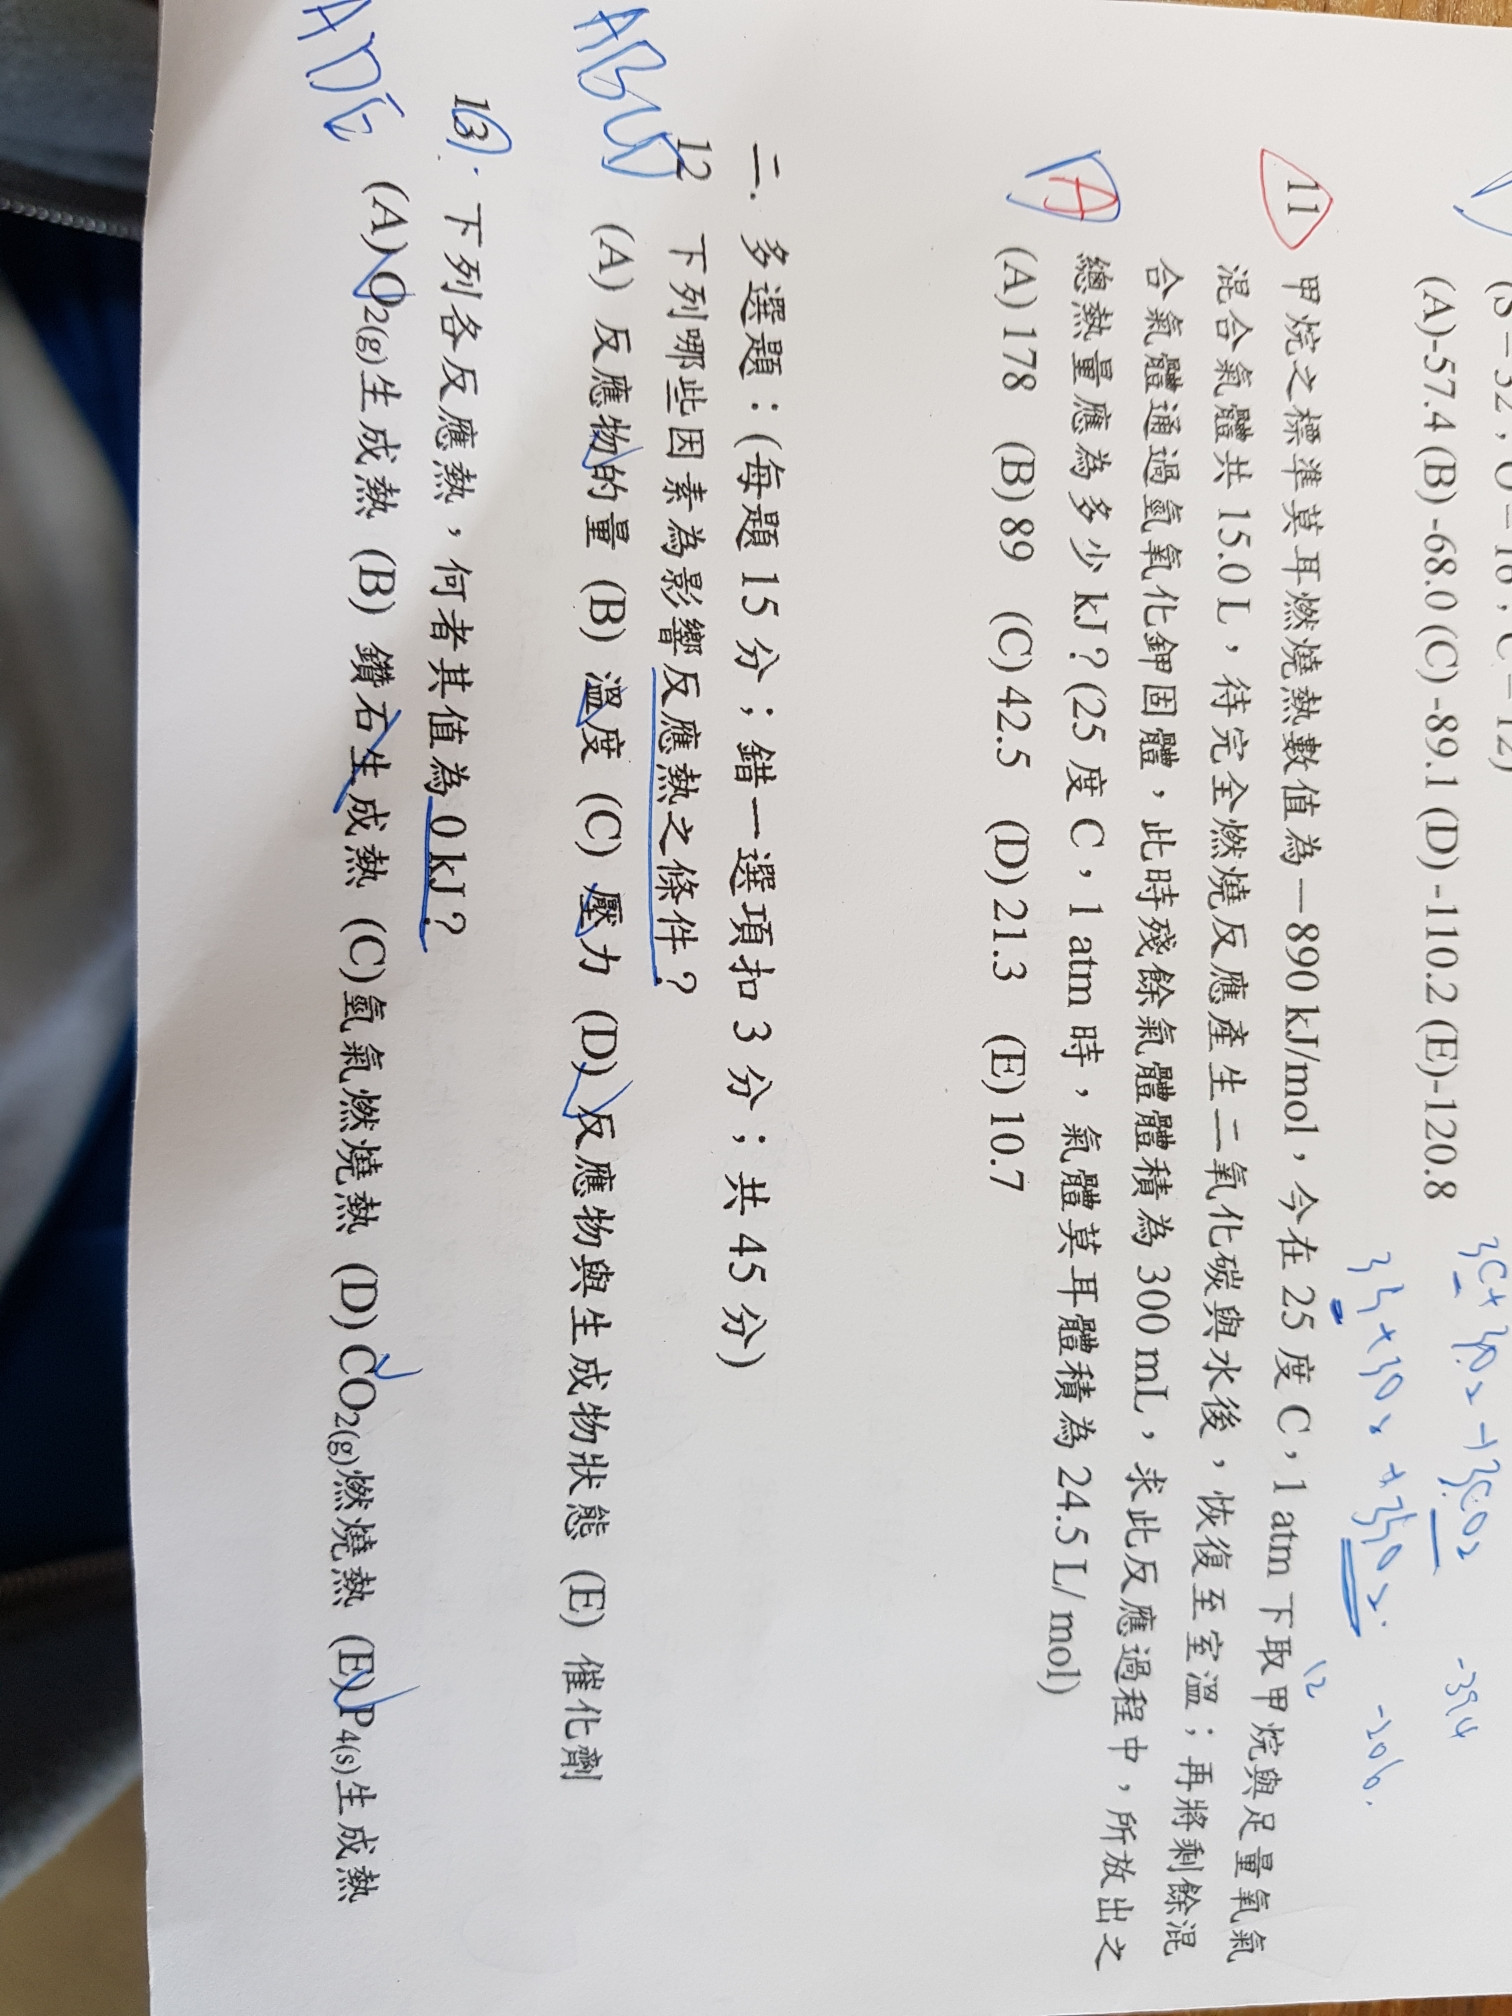 (A)-57.4 (B) -68.0 (C) -89.1 (D) -110.2 (E)-120.8
3C+3O₂→3CO₂ -394
-206.
12
11 甲烷之標準莫耳燃燒熱數值為－890 kJ/mol，今在 25 度 C，1 atm 下取甲烷與足量氧氣
混合氣體共 15.0 L，待完全燃燒反應產生二氧化碳與水後，恢復至室溫；再將剩餘混
合氣體通過氫氧化鉀固體，此時殘餘氣體體積為 300 mL，求此反應過程中，所放出之
A 總熱量應為多少 kJ？(25 度 C，1 atm 時，氣體莫耳體積為 24.5 L/ mol)
(A) 178 (B) 89 (C) 42.5 (D) 21.3 (E) 10.7
二. 多選題：(每題 15 分；錯一選項扣 3 分；共 45 分)
12 下列哪些因素為影響反應熱之條件？
(A) 反應物的量 (B) 溫度 (C) 壓力 (D) 反應物與生成物狀態 (E) 催化劑
13. 下列各反應熱，何者其值為 0 kJ？
ADE (A) O₂(g)生成熱 (B) 鑽石生成熱 (C)氫氣燃燒熱 (D) CO₂(g)燃燒熱 (E) P₄(s)生成熱